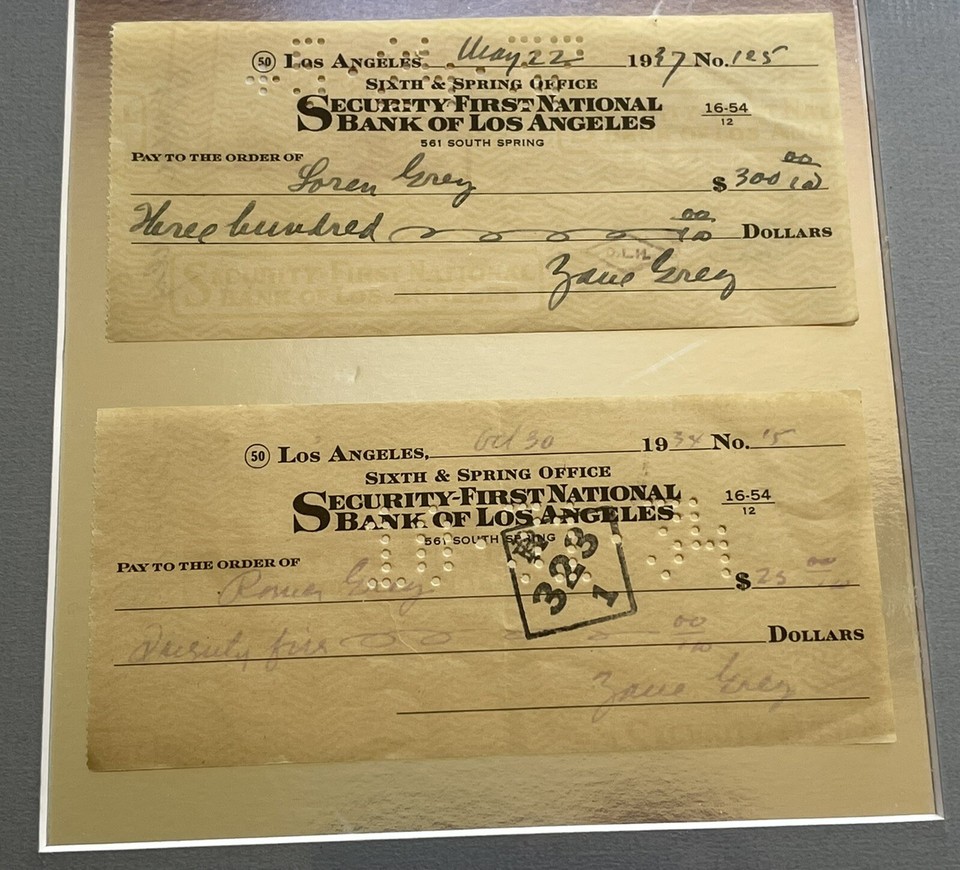 50 Los Angeles, May 22 1937 No. 125
Sixth & Spring Office
Security-First National
Bank of Los Angeles
16-54
12
561 South Spring
Pay to the order of Loren Grey $ 300 00/100
Three hundred 00/100 Dollars
D.L.H.
Zane Grey
50 Los Angeles, Oct 30 1934 No. 15
Sixth & Spring Office
Security-First National
Bank of Los Angeles
16-54
12
561 South Spring
323
1
Pay to the order of Romer Grey $ 25 00/100
Twenty five 00/100 Dollars
Zane Grey